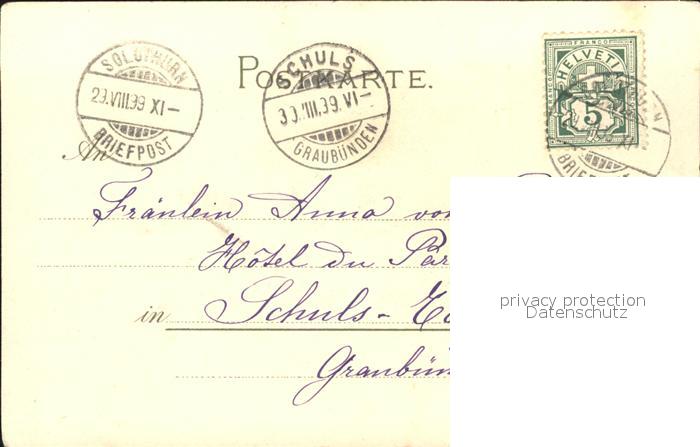 SOLOTHURN
29.VIII.99 XI–
BRIEFPOST
SCHULS
30.VIII.99.VI–
GRAUBÜNDEN
POSTKARTE.
FRANCO
HELVETIA
5
An
Fräulein Anna von
Hôtel du Par
in Schuls –
Graubün
privacy protection
Datenschutz